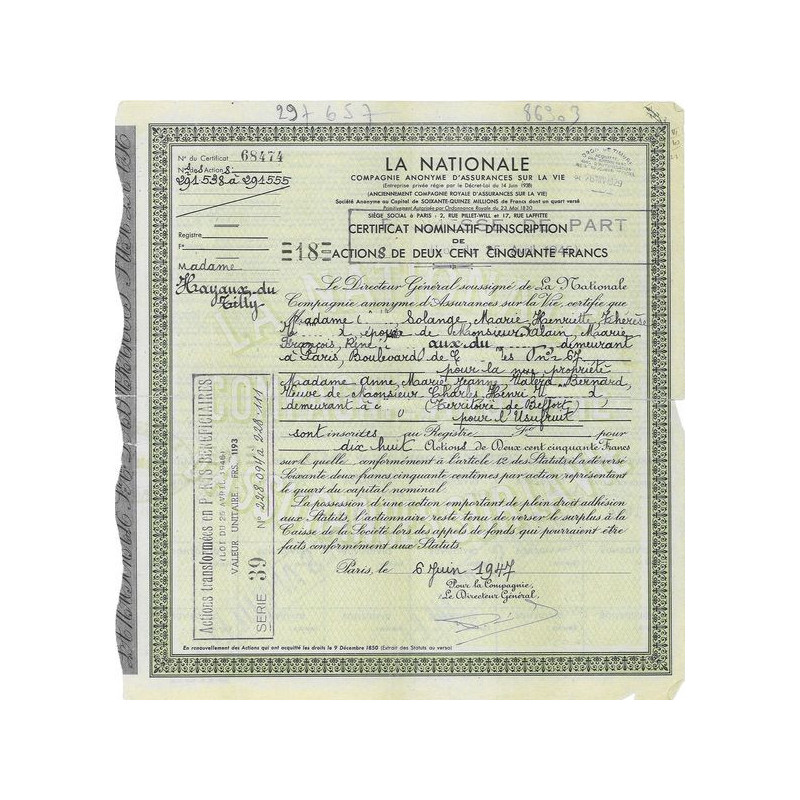 297657 86903
N° du Certificat 68474
N° des Actions
291538 à 291555
LA NATIONALE
COMPAGNIE ANONYME D'ASSURANCES SUR LA VIE
(Entreprise privée régie par le Décret-Loi du 14 Juin 1938)
(ANCIENNEMENT COMPAGNIE ROYALE D'ASSURANCES SUR LA VIE)
Société Anonyme au Capital de SOIXANTE-QUINZE MILLIONS de Francs dont un quart versé
Primitivement Autorisée par Ordonnance Royale du 23 Mai 1830
SIÈGE SOCIAL à PARIS - 2, RUE PILLET-WILL et 17, RUE LAFFITTE
DE PART
CERTIFICAT NOMINATIF D'INSCRIPTION
DE
18 ACTIONS DE DEUX CENT CINQUANTE FRANCS
Registre
F°
Madame
Hayaux du
Tilly
Le Directeur Général soussigné de La Nationale
Compagnie anonyme d'Assurances sur la Vie, certifie que
Madame Solange, Marie Henriette Thérèse
épouse de Monsieur Alain, Marie
François, René aux du demeurant
à Paris, Boulevard de N° 67
pour la nue propriété
Madame Anne, Marie Jeanne Bernard,
Veuve de Monsieur Charles Henri
demeurant à (Territoire de Belfort)
pour l'Usufruit
sont inscrites au Registre F° pour
dix huit Actions de Deux cent cinquante Francs
sur laquelle conformément à l'article 12 des Statuts il a été versé
Soixante deux francs cinquante centimes par action représentant
le quart du capital nominal.
La possession d'une action emportant de plein droit adhésion
aux Statuts, l'actionnaire reste tenu de verser le surplus à la
Caisse de la Société lors des appels de fonds qui pourraient être
faits conformément aux Statuts.
Paris, le 6 Juin 1947
Pour la Compagnie,
Le Directeur Général,
Actions transformées en PARTS BENEFICIAIRES
(LOI DU 25 AVRIL 1946)
VALEUR UNITAIRE : FRS. 1193
SERIE 39 N° 228.094 à 228.111
En renouvellement des Actions qui ont acquitté les droits le 9 Décembre 1850 (Extrait des Statuts au verso)